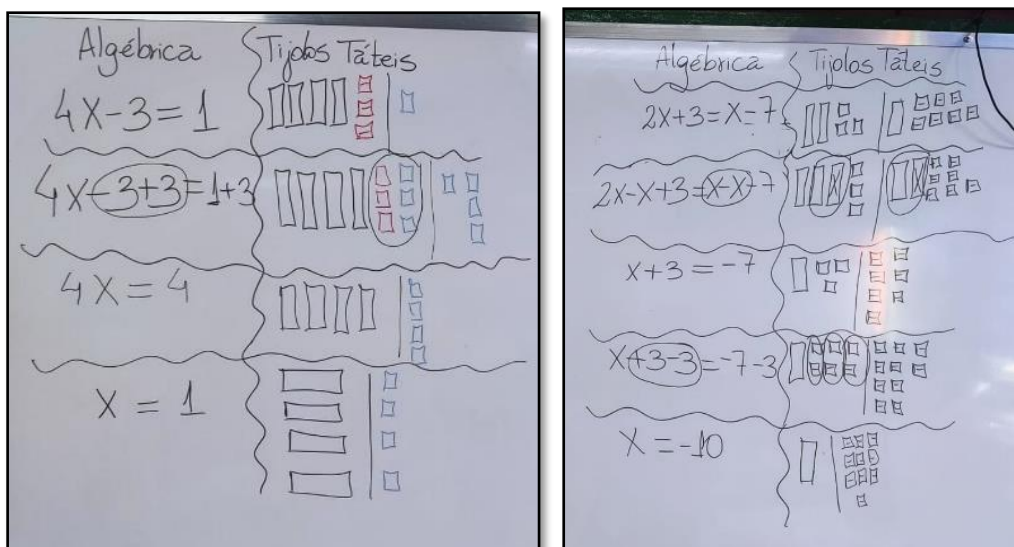 Algébrica Tijolos Táteis
4X-3=1
4X-3+3=1+3
4X=4
X=1
Algébrica Tijolos Táteis
2X+3=X-7
2X-X+3=X-X-7
X+3=-7
X+3-3=-7-3
X=-10